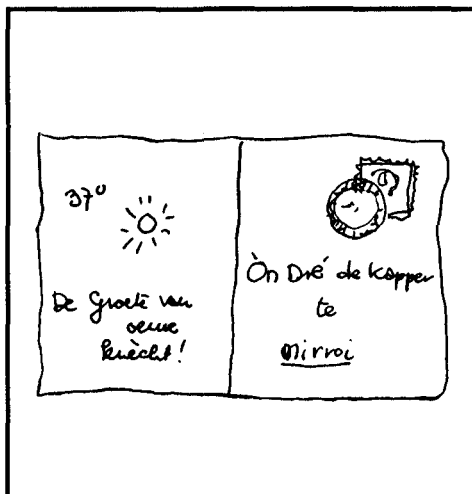 37°
De Groete van
oewe
knècht!
Òn Dré de Kapper
te
Mirroi